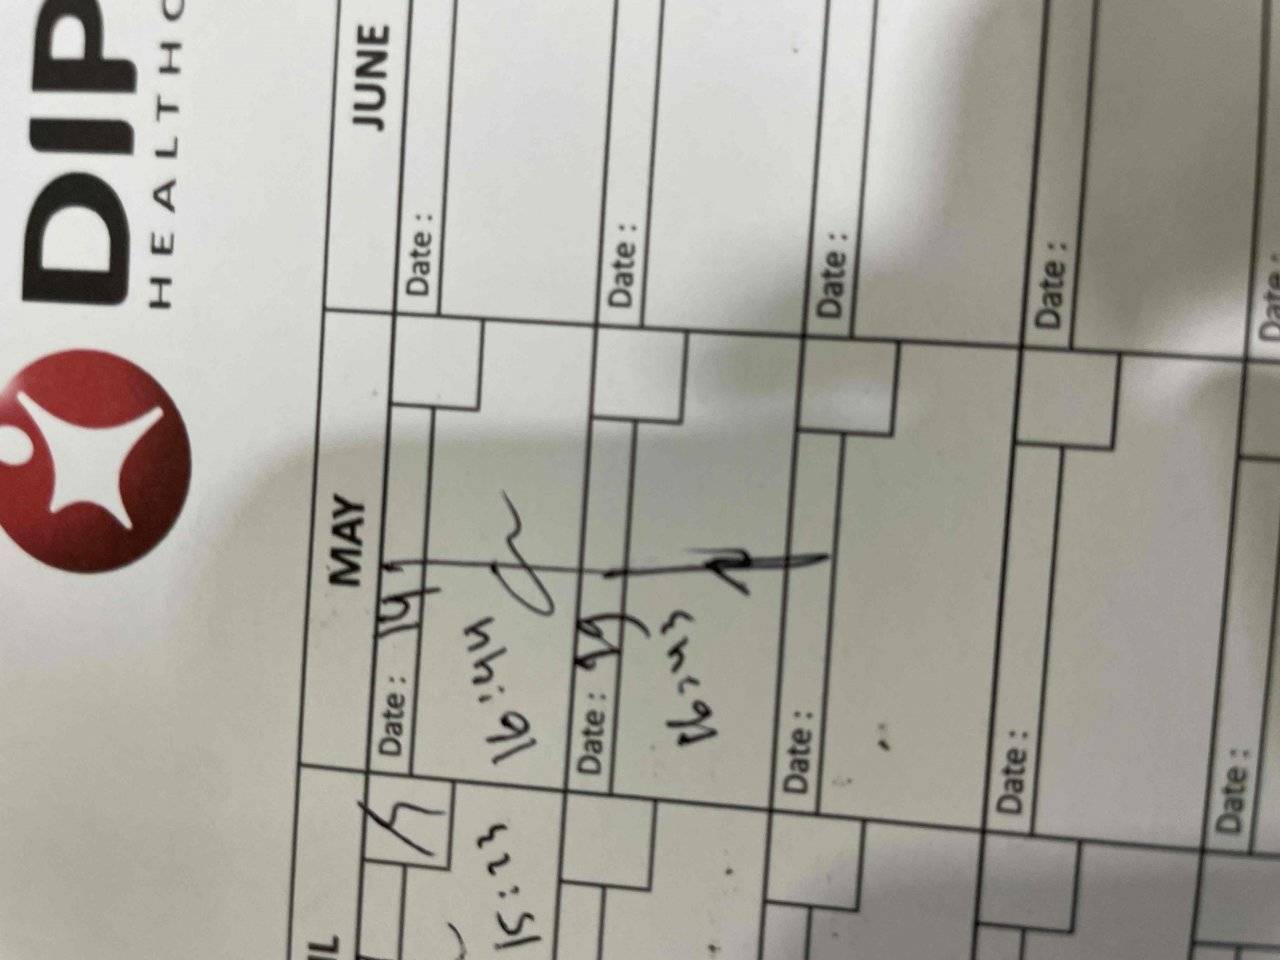 DIP
HEALTHC
IL
MAY
JUNE
15:23
Date : 14
16:44
Date :
Date : 29
16:43
Date :
Date :
Date :
Date :
Date :
Date :
Date